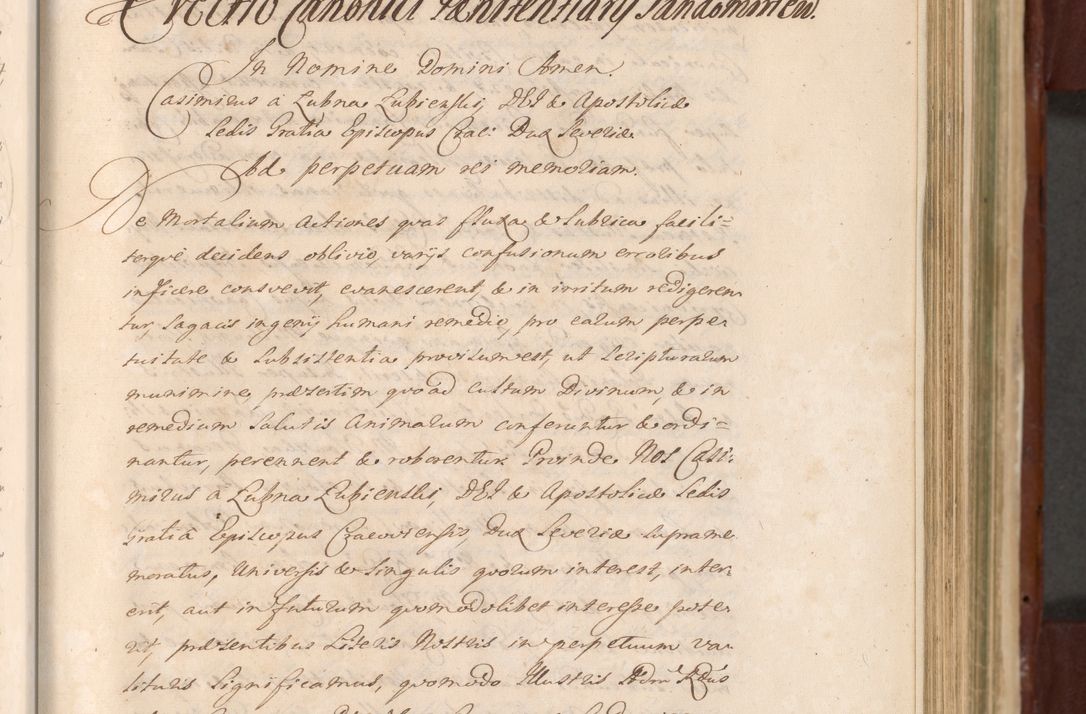 Erectio Canonici Pænitentiarij Sandomirien.
In Nomine Domini Amen.
Casimirus á Łubna Łubienski, DEI & Apostolicæ
Sedis Gratia Episcopus Craci Dux Severiæ
Ad perpetuam rei memoriam.
Ne Mortalium Actiones quas fluxa & lubrica facili=
terque decidens oblivio, varijs confusionum erroribus
inficere consvevit, evanescerent, & in irritum redigeren
tur, sagacis ingenij humani remedio, pro earum perpe=
tuitate & subsistentia provisum est, ut scripturarum
munimine, præsertim quoad cultum Divinum, & in
remedium salutis animarum conferuntur & ordi=
nantur, perennent & roborentur. Proinde Nos Casi:
mirus á Łubna Łubienski, DEI & Apostolicæ Sedis
Gratiâ Episcopus Cracoviensis, Dux Severiæ supráme
moratus, Universis & singulis quorum interest, inter:
erit, aut in futurum quomodolibet interesse pote
rit, præsentibus Literis Nostris in perpetuum va
lituris significamus, quomodo Illustris Adm Rdus